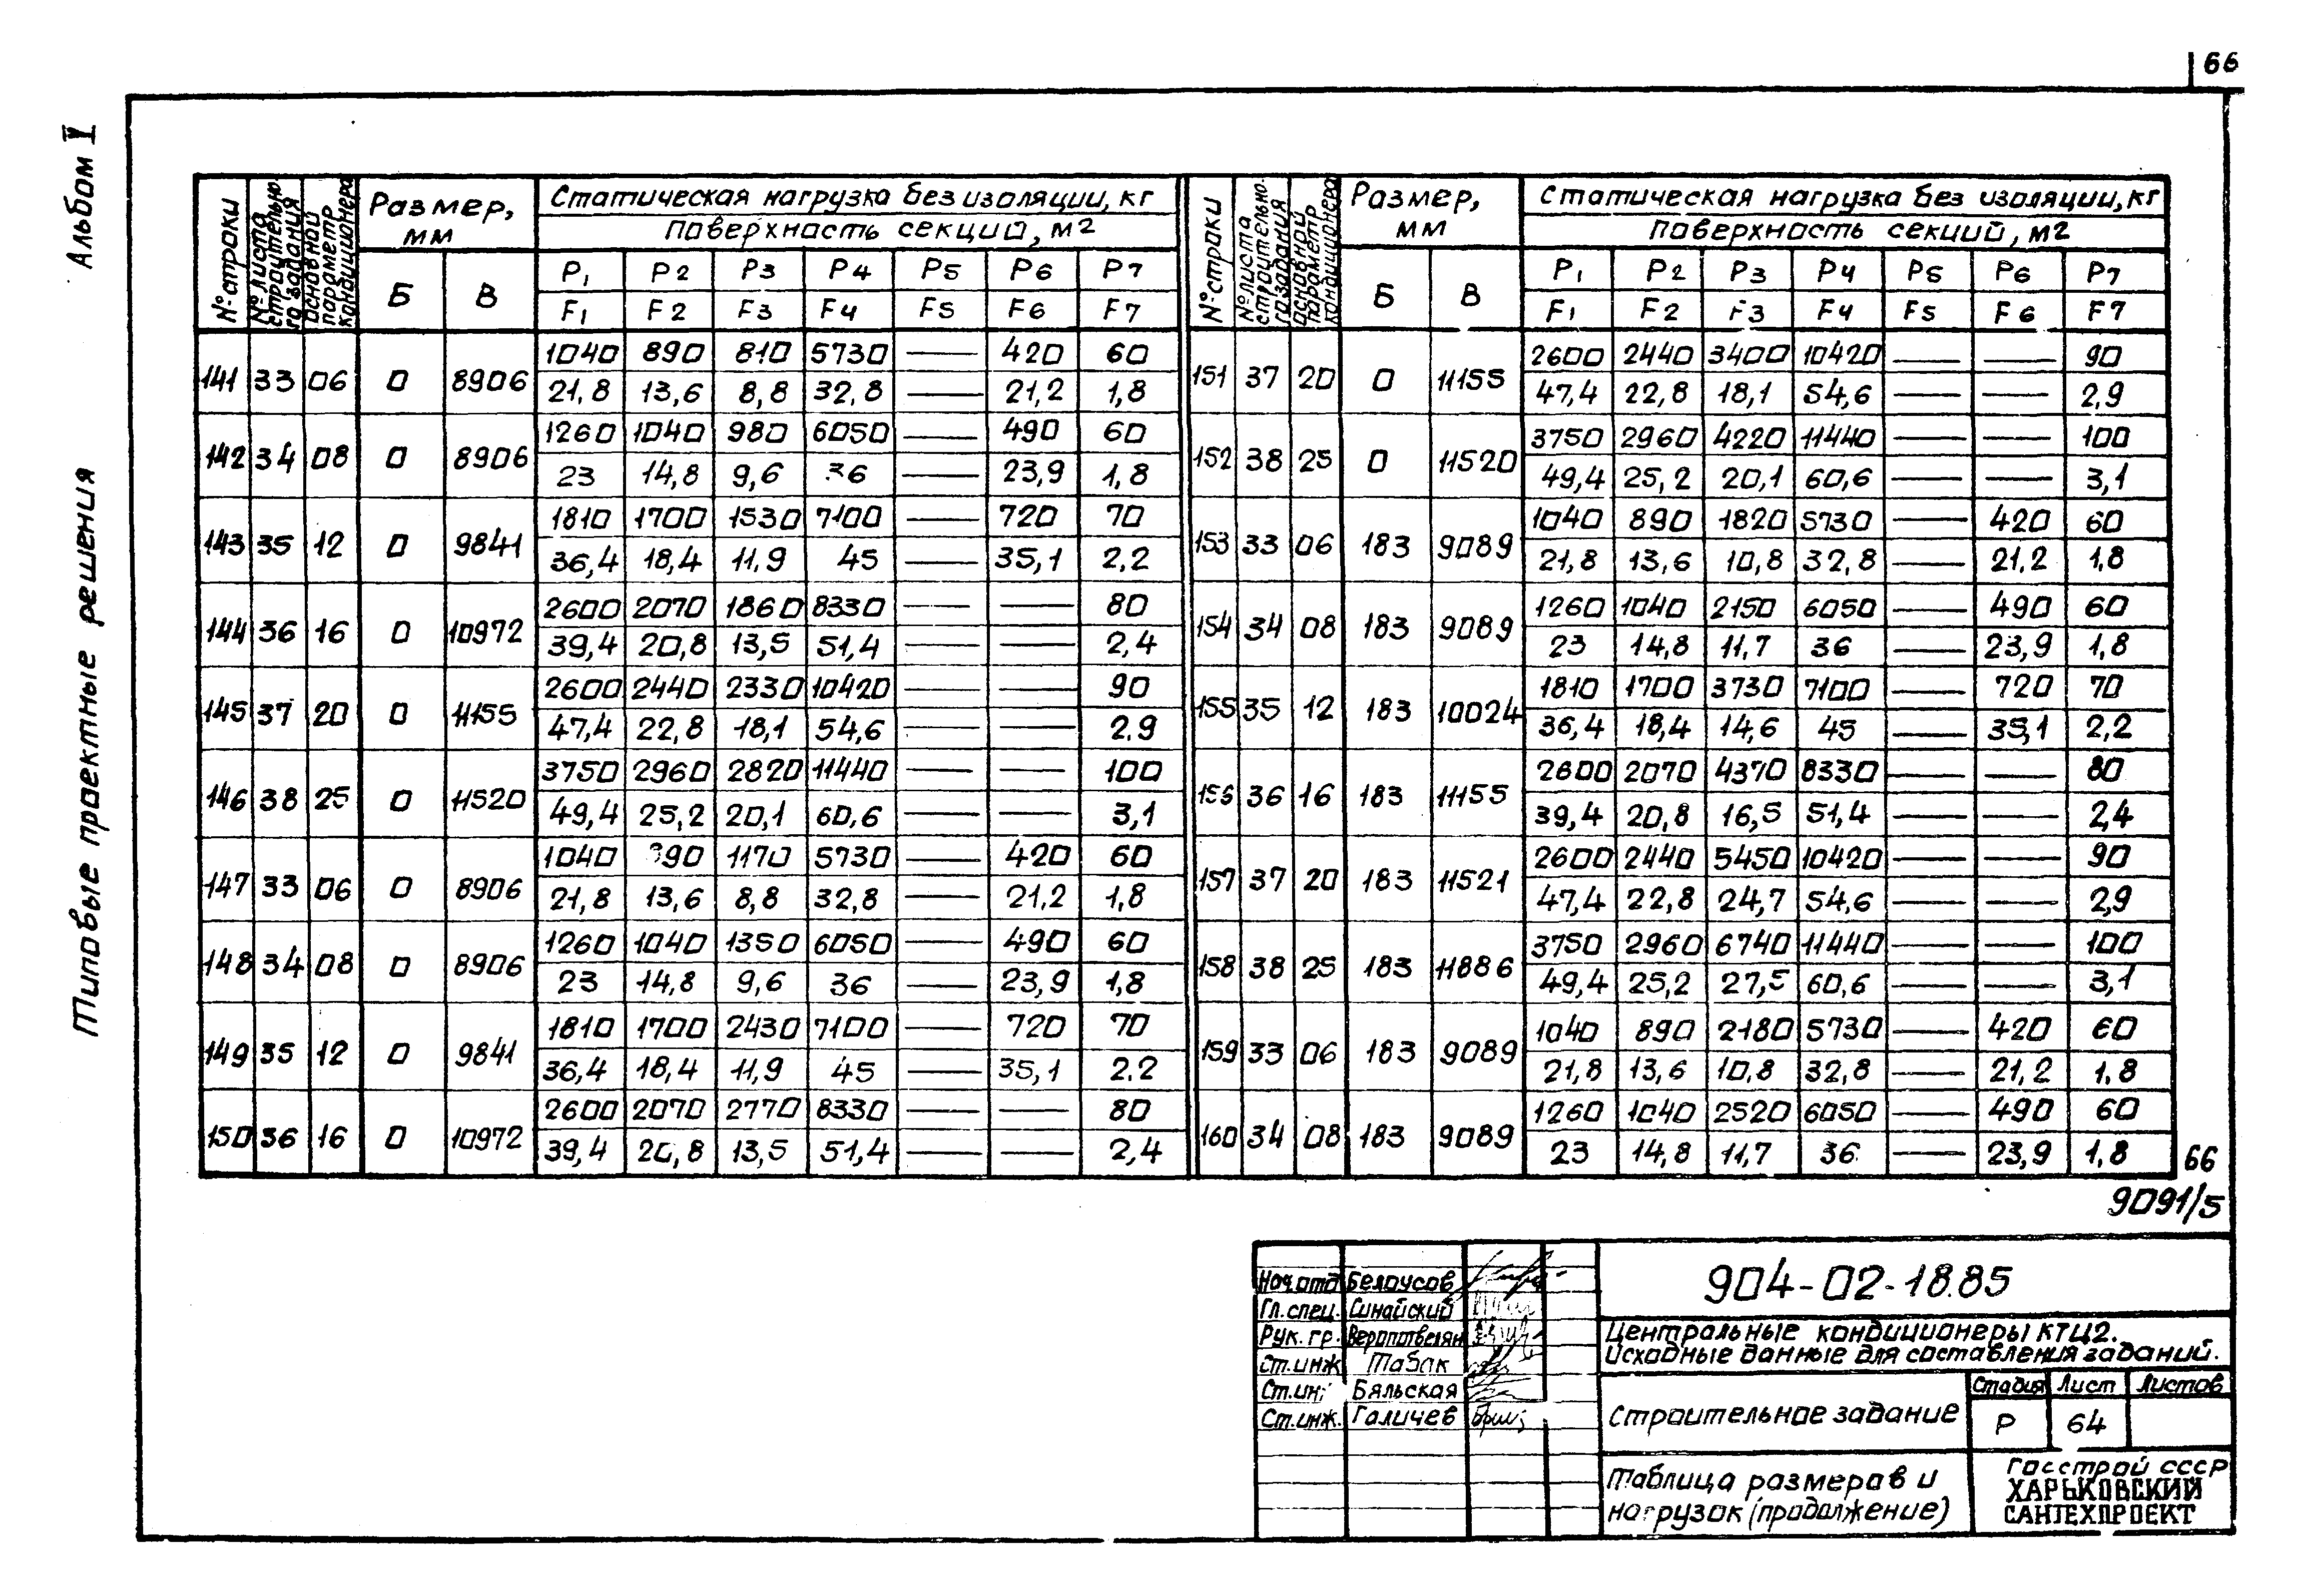 66
Альбом V
Типовые проектные решения
№ строки | № листа строительного задания | Основной параметр кондиционера | Размер, мм | Статическая нагрузка без изоляции, кг | № строки | № листа строительного задания | Основной параметр кондиционера | Размер, мм | Статическая нагрузка без изоляции, кг
Поверхность секций, м2 | Поверхность секций, м2
Б | В | P1 | P2 | P3 | P4 | P5 | P6 | P7 | Б | В | P1 | P2 | P3 | P4 | P5 | P6 | P7
F1 | F2 | F3 | F4 | F5 | F6 | F7 | F1 | F2 | F3 | F4 | F5 | F6 | F7
141 | 33 | 06 | 0 | 8906 | 1040 | 890 | 810 | 5730 | — | 420 | 60
21,8 | 13,6 | 8,8 | 32,8 | — | 21,2 | 1,8
142 | 34 | 08 | 0 | 8906 | 1260 | 1040 | 980 | 6050 | — | 490 | 60
23 | 14,8 | 9,6 | 36 | — | 23,9 | 1,8
143 | 35 | 12 | 0 | 9841 | 1810 | 1700 | 1530 | 7100 | — | 720 | 70
36,4 | 18,4 | 11,9 | 45 | — | 35,1 | 2,2
144 | 36 | 16 | 0 | 10972 | 2600 | 2070 | 1860 | 8330 | — | — | 80
39,4 | 20,8 | 13,5 | 51,4 | — | — | 2,4
145 | 37 | 20 | 0 | 11155 | 2600 | 2440 | 2330 | 10420 | — | — | 90
47,4 | 22,8 | 18,1 | 54,6 | — | — | 2.9
146 | 38 | 25 | 0 | 11520 | 3750 | 2960 | 2820 | 11440 | — | — | 100
49,4 | 25,2 | 20,1 | 60,6 | — | — | 3,1
147 | 33 | 06 | 0 | 8906 | 1040 | 890 | 1170 | 5730 | — | 420 | 60
21,8 | 13,6 | 8,8 | 32,8 | — | 21,2 | 1,8
148 | 34 | 08 | 0 | 8906 | 1260 | 1040 | 1350 | 6050 | — | 490 | 60
23 | 14,8 | 9,6 | 36 | — | 23,9 | 1,8
149 | 35 | 12 | 0 | 9841 | 1810 | 1700 | 2430 | 7100 | — | 720 | 70
36,4 | 18,4 | 11,9 | 45 | — | 35,1 | 2.2
150 | 36 | 16 | 0 | 10972 | 2600 | 2070 | 2770 | 8330 | — | — | 80
39,4 | 20,8 | 13,5 | 51,4 | — | — | 2,4
151 | 37 | 20 | 0 | 11155 | 2600 | 2440 | 3400 | 10420 | — | — | 90
47,4 | 22,8 | 18,1 | 54,6 | — | — | 2,9
152 | 38 | 25 | 0 | 11520 | 3750 | 2960 | 4220 | 11440 | — | — | 100
49,4 | 25,2 | 20,1 | 60,6 | — | — | 3,1
153 | 33 | 06 | 183 | 9089 | 1040 | 890 | 1820 | 5730 | — | 420 | 60
21,8 | 13,6 | 10,8 | 32,8 | — | 21,2 | 1,8
154 | 34 | 08 | 183 | 9089 | 1260 | 1040 | 2150 | 6050 | — | 490 | 60
23 | 14,8 | 11,7 | 36 | — | 23,9 | 1,8
155 | 35 | 12 | 183 | 10024 | 1810 | 1700 | 3730 | 7100 | — | 720 | 70
36,4 | 18,4 | 14,6 | 45 | — | 35,1 | 2,2
156 | 36 | 16 | 183 | 11155 | 2600 | 2070 | 4370 | 8330 | — | — | 80
39,4 | 20,8 | 16,5 | 51,4 | — | — | 2,4
157 | 37 | 20 | 183 | 11521 | 2600 | 2440 | 5450 | 10420 | — | — | 90
47,4 | 22,8 | 24,7 | 54,6 | — | — | 2,9
158 | 38 | 25 | 183 | 11886 | 3750 | 2960 | 6740 | 11440 | — | — | 100
49,4 | 25,2 | 27,5 | 60,6 | — | — | 3,1
159 | 33 | 06 | 183 | 9089 | 1040 | 890 | 2180 | 5730 | — | 420 | 60
21,8 | 13,6 | 10,8 | 32,8 | — | 21,2 | 1,8
160 | 34 | 08 | 183 | 9089 | 1260 | 1040 | 2520 | 6050 | — | 490 | 60
23 | 14,8 | 11,7 | 36 | — | 23,9 | 1,8
66
9091/5
Нач.отд Белоусов
Гл.спец. Синайский
Рук. гр.
Ст.инж Табак
Ст.инж Бяльская
Ст.инж. Галичев
904-02-18.85
Центральные кондиционеры КТЦ2.
Исходные данные для составления заданий.
Строительное задание
Стадия Лист Листов
Р 64
Таблица размеров и
нагрузок (продолжение)
Госстрой СССР
ХАРЬКОВСКИЙ
САНТЕХПРОЕКТ